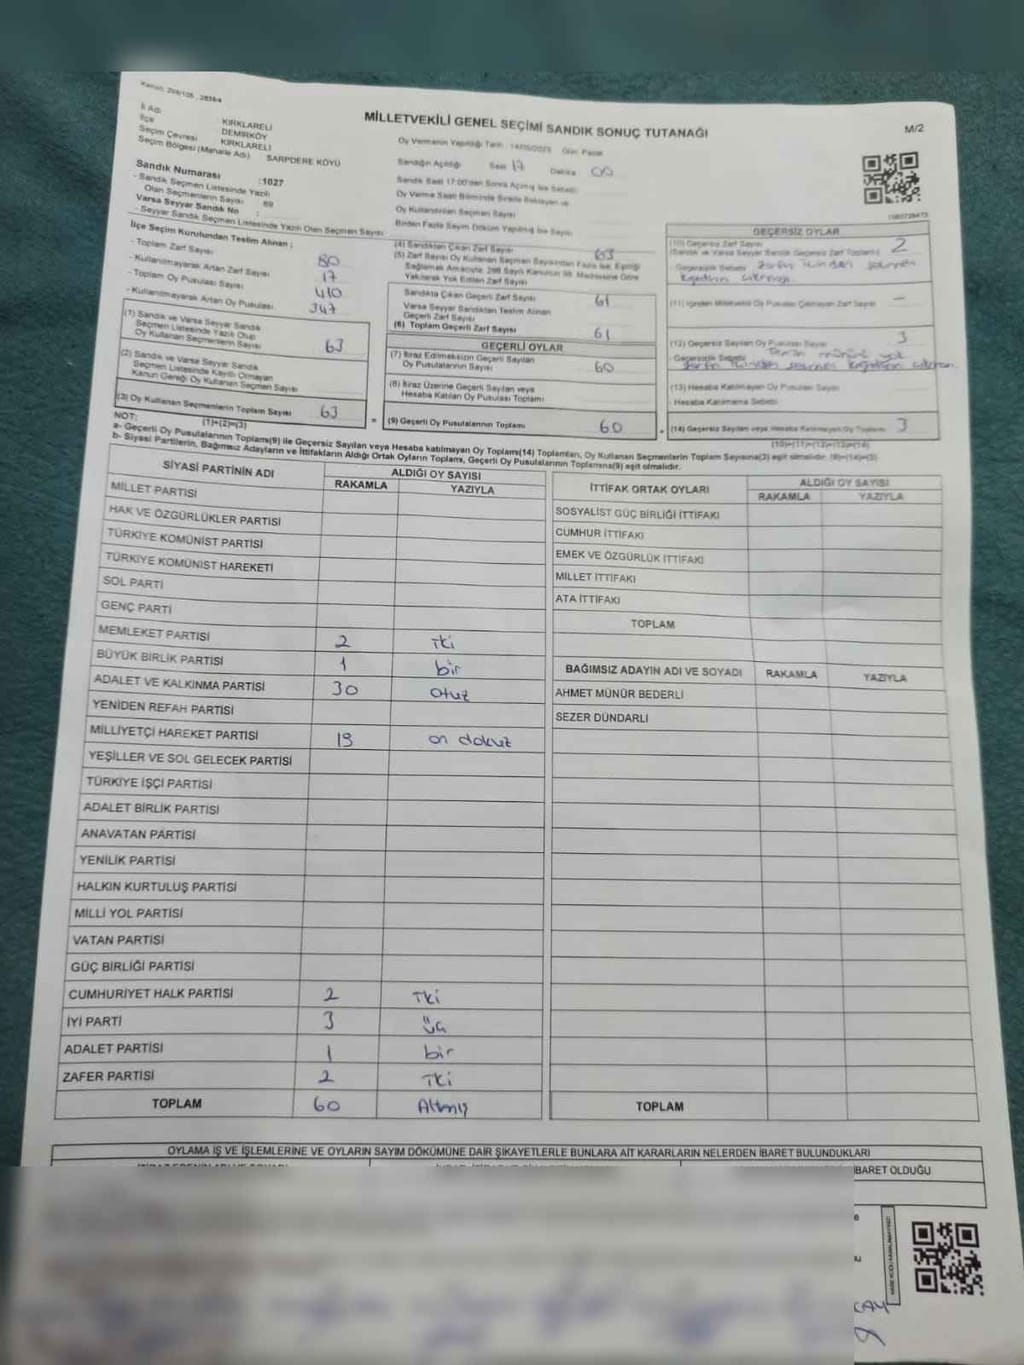 Kanun: 298/105 , 2839/4
MİLLETVEKİLİ GENEL SEÇİMİ SANDIK SONUÇ TUTANAĞI
M/2
İl Adı KIRKLARELİ
İlçe DEMİRKÖY
Seçim Çevresi KIRKLARELİ
Seçim Bölgesi (Mahalle Adı) SARPDERE KÖYÜ
Oy Vermenin Yapıldığı Tarih : 14/05/2023 Gün: Pazar
Sandığın Açıldığı Saat 17 Dakika 00
Sandık Numarası :1027
- Sandık Seçmen Listesinde Yazılı
Olan Seçmenlerin Sayısı 69
Varsa Seyyar Sandık No :
- Seyyar Sandık Seçmen Listesinde Yazılı Olan Seçmen Sayısı
Sandık Saat 17:00'den Sonra Açılmış İse Sebebi
Oy Verme Saati Bitiminde Sırada Bekleyen ve
Oy Kullandırılan Seçmen Sayısı
Birden Fazla Sayım Döküm Yapılmış İse Sayısı
İlçe Seçim Kurulundan Teslim Alınan ;
- Toplam Zarf Sayısı 80
- Kullanılmayarak Artan Zarf Sayısı 17
- Toplam Oy Pusulası Sayısı 410
- Kullanılmayarak Artan Oy Pusulası 347
(1) Sandık ve Varsa Seyyar Sandık
Seçmen Listesinde Yazılı Olup
Oy Kullanan Seçmenlerin Sayısı 63
(2) Sandık ve Varsa Seyyar Sandık
Seçmen Listesinde Kayıtlı Olmayan
Kanun Gereği Oy Kullanan Seçmen Sayısı
(3) Oy Kullanan Seçmenlerin Toplam Sayısı 63
(1)+(2)=(3)
(4) Sandıktan Çıkan Zarf Sayısı 63
(5) Zarf Sayısı Oy Kullanan Seçmen Sayısından Fazla İse, Eşitliği
Sağlamak Amacıyla; 298 Sayılı Kanunun 98. Maddesine Göre
Yakılarak Yok Edilen Zarf Sayısı
Sandıkta Çıkan Geçerli Zarf Sayısı 61
Varsa Seyyar Sandıktan Teslim Alınan
Geçerli Zarf Sayısı
(6) Toplam Geçerli Zarf Sayısı 61
GEÇERLİ OYLAR
(7) İtiraz Edilmeksizin Geçerli Sayılan
Oy Pusulalarının Sayısı 60
(8) İtiraz Üzerine Geçerli Sayılan veya
Hesaba Katılan Oy Pusulası Toplamı
= (9) Geçerli Oy Pusulalarının Toplamı 60 +
GEÇERSİZ OYLAR
(10) Geçersiz Zarf Sayısı 2
(Sandık ve Varsa Seyyar Sandık Geçersiz Zarf Toplamı)
Geçersizlik Sebebi zarfın içinden seçmen
kağıdının çıkması
(11) İçinden Milletvekili Oy Pusulası Çıkmayan Zarf Sayısı —
(12) Geçersiz Sayılan Oy Pusulası Sayısı 3
Geçersizlik Sebebi mührü yok
zarfın içinden seçmen kağıdının
(13) Hesaba Katılmayan Oy Pusulası Sayısı
- Hesaba Katılmama Sebebi
(14) Geçersiz Sayılan veya Hesaba Katılmayan Oy Toplamı 3
(10)+(11)+(12)+(13)=(14)
NOT:
a- Geçerli Oy Pusulalarının Toplamı(9) ile Geçersiz Sayılan veya Hesaba katılmayan Oy Toplamı(14) Toplamları, Oy Kullanan Seçmenlerin Toplam Sayısına(3) eşit olmalıdır. (9)+(14)=(3)
b- Siyasi Partilerin, Bağımsız Adayların ve İttifakların Aldığı Ortak Oyların Toplamı, Geçerli Oy Pusulalarının Toplamına(9) eşit olmalıdır.
SİYASİ PARTİNİN ADI
ALDIĞI OY SAYISI
RAKAMLA YAZIYLA
MİLLET PARTİSİ
HAK VE ÖZGÜRLÜKLER PARTİSİ
TÜRKİYE KOMÜNİST PARTİSİ
TÜRKİYE KOMÜNİST HAREKETİ
SOL PARTİ
GENÇ PARTİ
MEMLEKET PARTİSİ 2 iki
BÜYÜK BİRLİK PARTİSİ 1 bir
ADALET VE KALKINMA PARTİSİ 30 otuz
YENİDEN REFAH PARTİSİ
MİLLİYETÇİ HAREKET PARTİSİ 19 on dokuz
YEŞİLLER VE SOL GELECEK PARTİSİ
TÜRKİYE İŞÇİ PARTİSİ
ADALET BİRLİK PARTİSİ
ANAVATAN PARTİSİ
YENİLİK PARTİSİ
HALKIN KURTULUŞ PARTİSİ
MİLLİ YOL PARTİSİ
VATAN PARTİSİ
GÜÇ BİRLİĞİ PARTİSİ
CUMHURİYET HALK PARTİSİ 2 iki
İYİ PARTİ 3 üç
ADALET PARTİSİ 1 bir
ZAFER PARTİSİ 2 iki
TOPLAM 60 Altmış
İTTİFAK ORTAK OYLARI
ALDIĞI OY SAYISI
RAKAMLA YAZIYLA
SOSYALİST GÜÇ BİRLİĞİ İTTİFAKI
CUMHUR İTTİFAKI
EMEK VE ÖZGÜRLÜK İTTİFAKI
MİLLET İTTİFAKI
ATA İTTİFAKI
TOPLAM
BAĞIMSIZ ADAYIN ADI VE SOYADI RAKAMLA YAZIYLA
AHMET MÜNÜR BEDERLİ
SEZER DÜNDARLI
TOPLAM
OYLAMA İŞ VE İŞLEMLERİNE VE OYLARIN SAYIM DÖKÜMÜNE DAİR ŞİKAYETLERLE BUNLARA AİT KARARLARIN NELERDEN İBARET BULUNDUKLARI
İBARET OLDUĞU